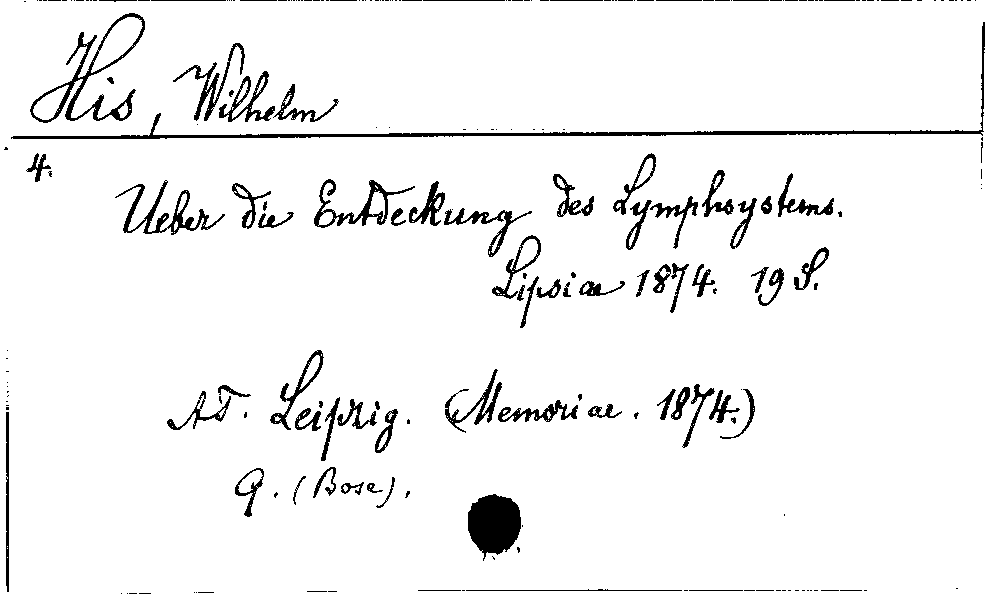 His, Wilhelm
4.
Ueber die Entdeckung des Lymphsystems.
Lipsiae 1874. 19 S.
AT. Leipzig. (Memoriae. 1874.)
9. (Bose).